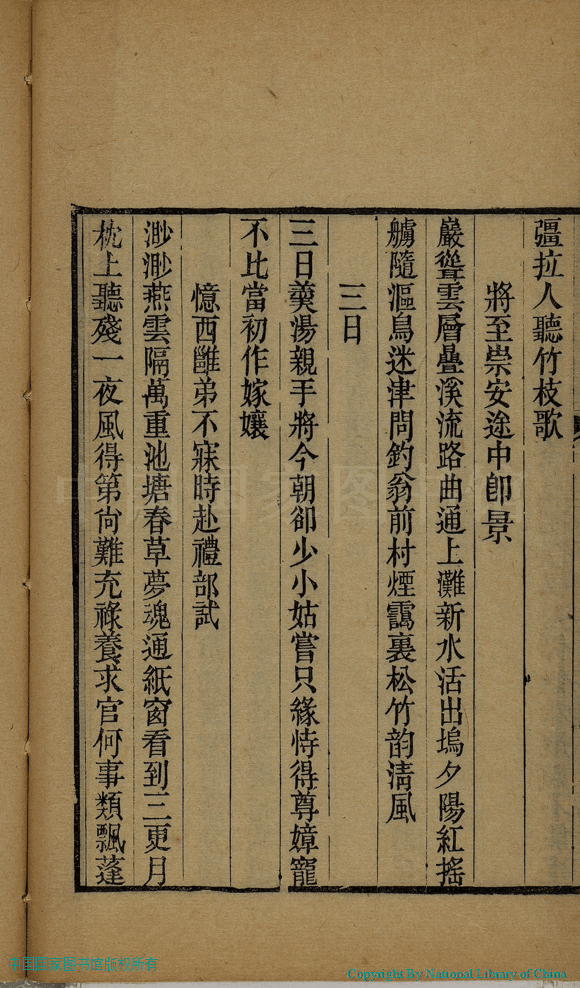 疆拉人聽竹枝歌
將至崇安途中卽景
巖聳雲層疊溪流路曲通上灘新水活出塢夕陽紅搖
艣隨漚鳥迷津問釣翁前村煙靄裏松竹韵清風
三日
三日羹湯親手將今朝卻少小姑嘗只緣恃得尊嫜寵
不比當初作嫁孃
憶西雝弟不寐時赴禮部試
渺渺燕雲隔萬重池塘春草夢魂通紙窗看到三更月
枕上聽殘一夜風得第尙難充祿養求官何事類飄蓬
中国国家图书馆
中国国家图书馆版权所有
Copyright By National Library of China